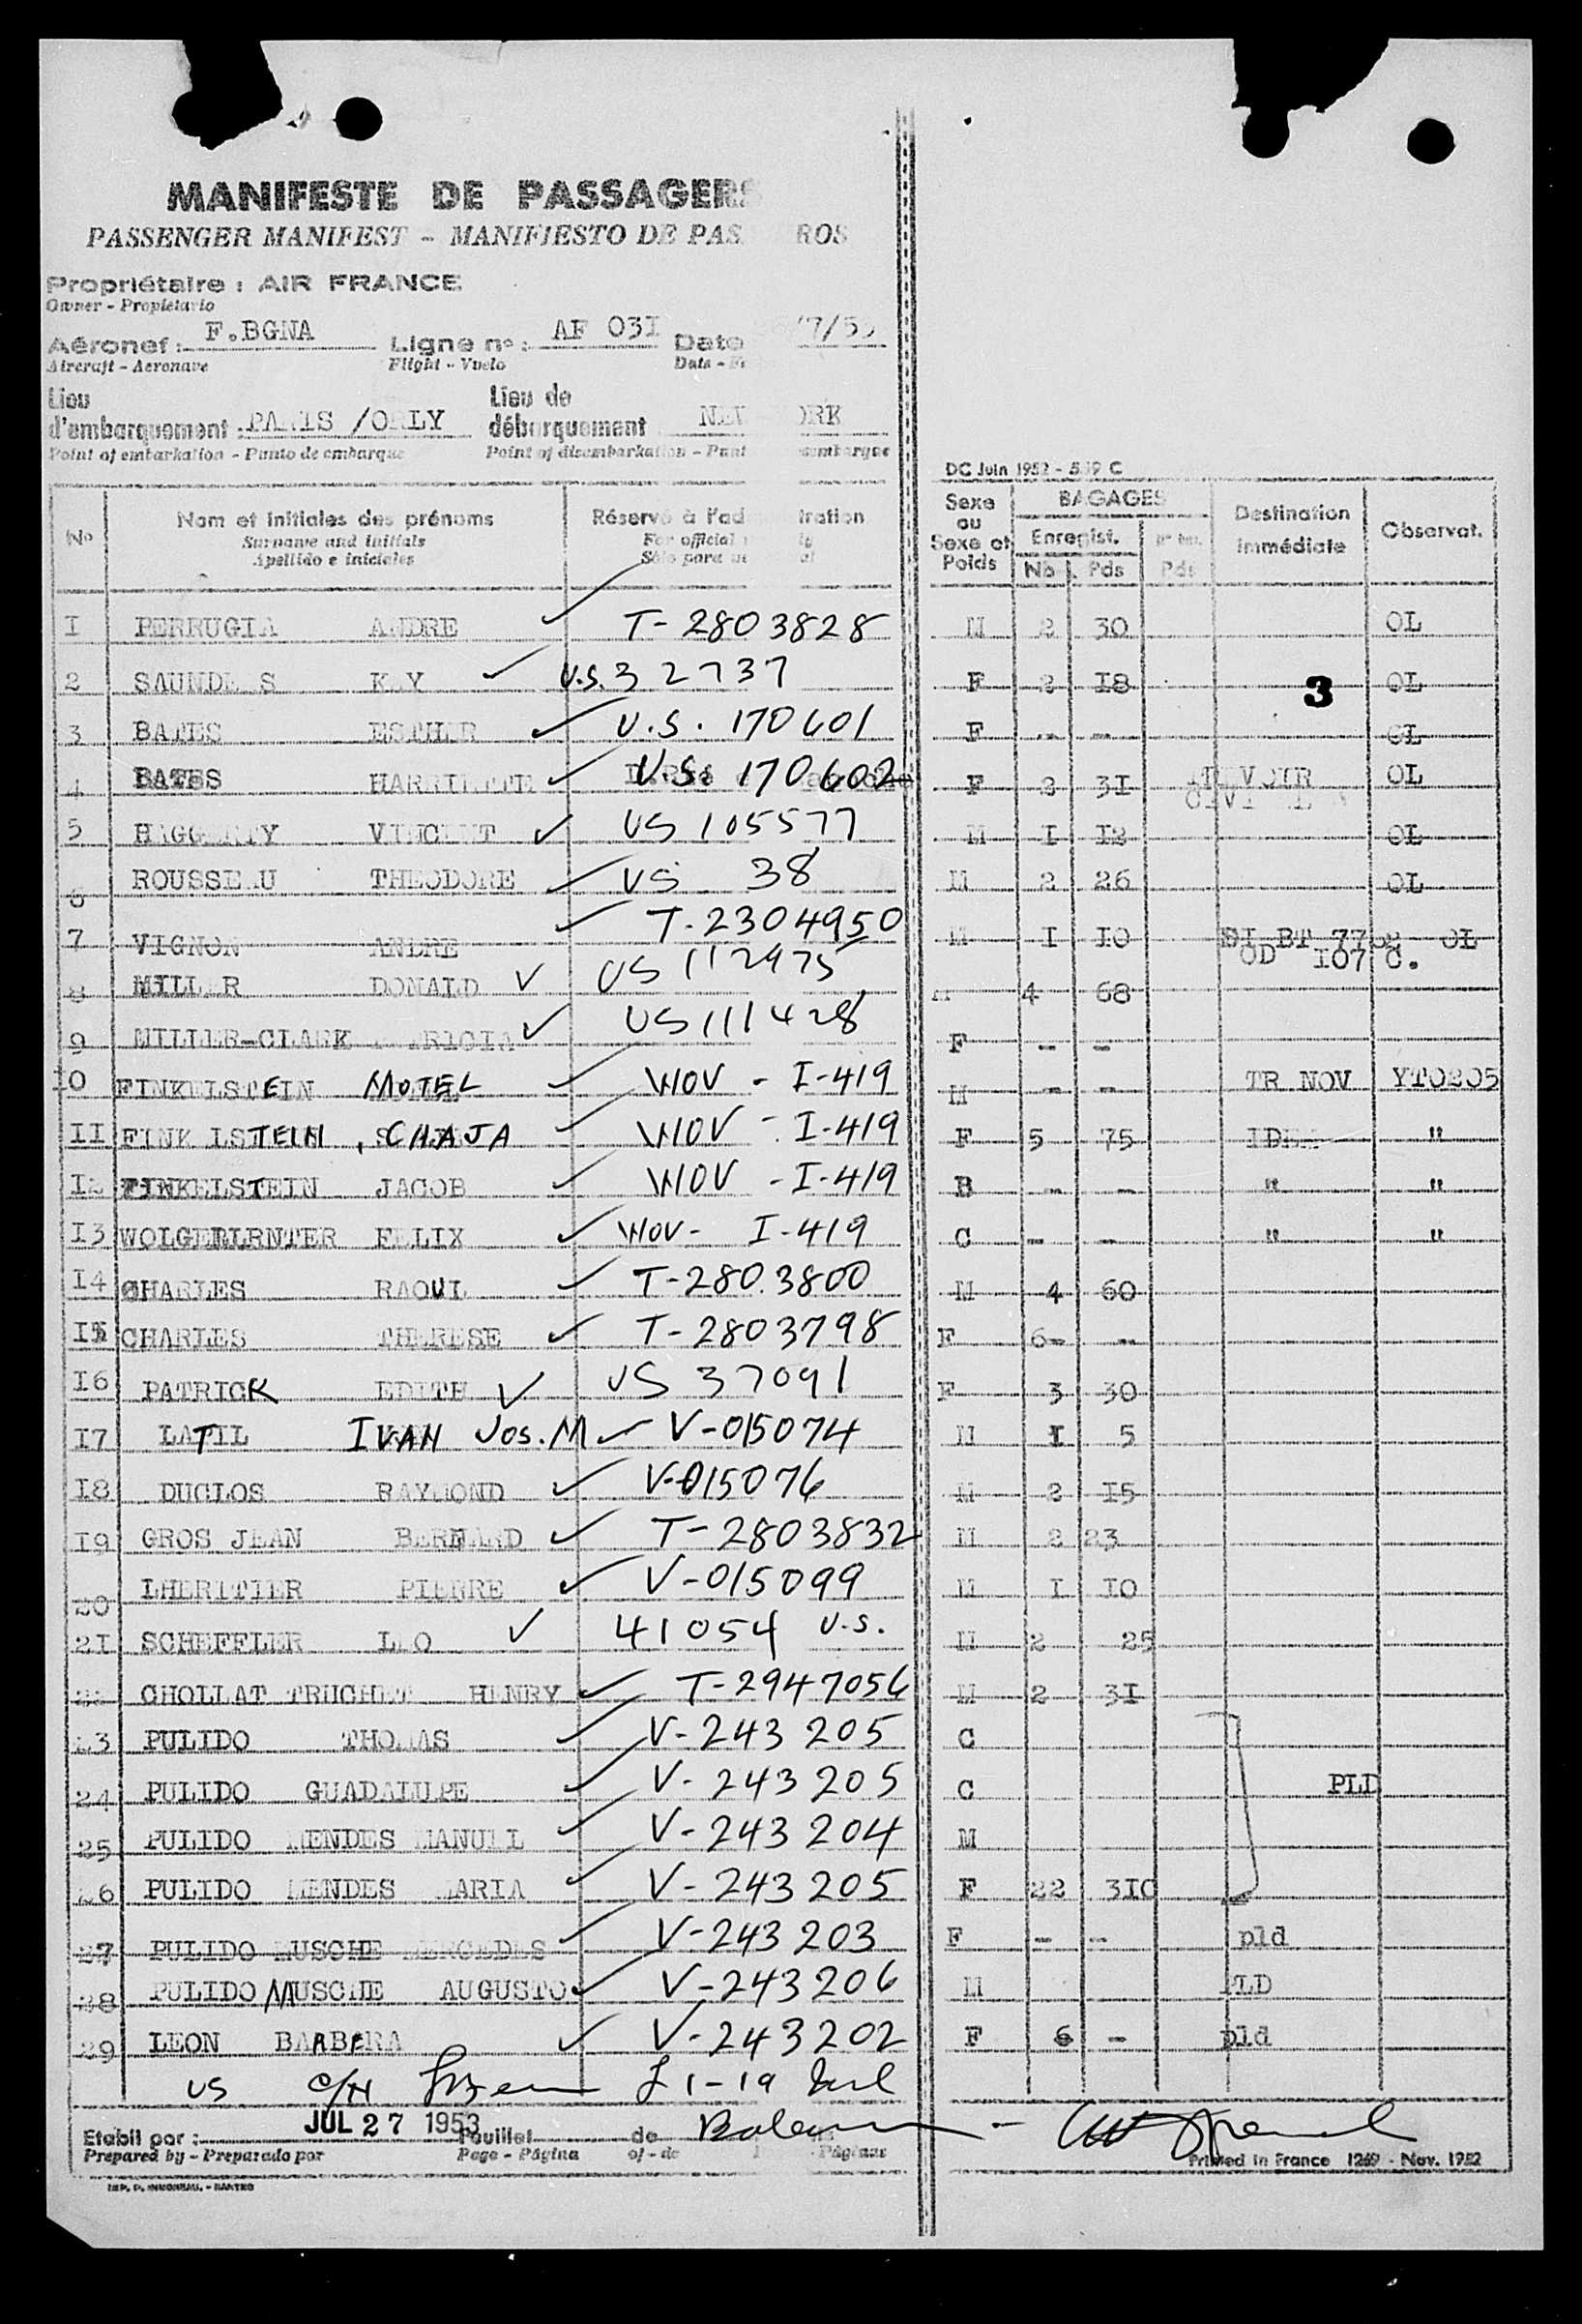 MANIFESTE DE PASSAGERS
PASSENGER MANIFEST - MANIFIESTO DE PAS ROS
Propriétaire : AIR FRANCE
Owner - Propietario
Aéronef : F.BGNA Ligne nº : AF 03I Date /7/53
Aircraft - Aeronave Flight - Vuelo Date - Fe
Lieu d'embarquement : PARIS /ORLY Lieu de débarquement NEW ORK
Point of embarkation - Punto de embarque Point of disembarkation - Punt sembarque
DC Juin 1952 - 539 C
Nº Nom et initiales des prénoms Réservé à l'ad ration Sexe ou Sexe et Poids BAGAGES Destination immédiate Observat.
Surname and initials For official ly Enregist.
Apellido e iniciales Sólo para us al No Pds Pds
I PERRUGIA ANDRE ✓ T-2803828 M 2 30 OL
2 SAUNDE S K Y ✓ U.S. 32737 F 2 I8 3 OL
3 BATES ESTHER ✓ U.S. 170601 F - - OL
4 BATES HARRIETTE ✓ U.S. 170602 F 2 3I OL
5 HAGGERTY VINCENT ✓ US 105577 M I I2 OL
6 ROUSSEAU THEODORE ✓ US 38 M 2 26 OL
7 VIGNON ANDRE ✓ T-2304950 M I I0 OL
OD I07 C.
8 MILLER DONALD ✓ US 112975 M 4 68
9 MILLER-CLARK TRICIA ✓ US 111428 F - -
I0 FINKELSTEIN MOTEL ✓ WOV - I-419 M - - TR NOV YT0205
II FINK LSTEIN, CHAJA ✓ WOV - I-419 F 5 75 IDEM "
I2 FINKELSTEIN JACOB ✓ WOV - I-419 B - - " "
I3 FELIX ✓ WOV - I-419 C - - " "
I4 CHARLES RAOUL ✓ T-2803800 M 4 60
I5 CHARLES THERESE ✓ T-2803798 F 6- -
I6 PATRICK EDITH ✓ US 37091 F 3 30
I7 LATIL IVAN Jos. M ✓ V-015074 M I 5
I8 DUCLOS RAYMOND ✓ V-015076 M 2 I5
I9 GROS JEAN BERNARD ✓ T-2803832 M 2 23
20 LHERITIER PIERRE ✓ V-015099 M I I0
2I SCHEFFLER L O ✓ 41054 U.S. M 2 25
22 CHOLLAT TRUCHET HENRY ✓ T-2947056 M 2 3I
23 PULIDO THOMAS ✓ V-243205 C
24 PULIDO GUADALUPE ✓ V-243205 C PLD
25 PULIDO MENDES MANUEL ✓ V-243204 M
26 PULIDO MENDES MARIA ✓ V-243205 F 22 3I0
27 PULIDO MUSCHE MERCEDES ✓ V-243203 F - - pld
28 PULIDO MUSCHE AUGUSTO ✓ V-243206 M PLD
29 LEON BARBARA ✓ V-243202 F 6 - pld
US
Etabli par : JUL 27 1953 Feuillet de
Prepared by - Preparado por Page - Página of - de Páginas
Printed in France 1269 - Nov. 1952